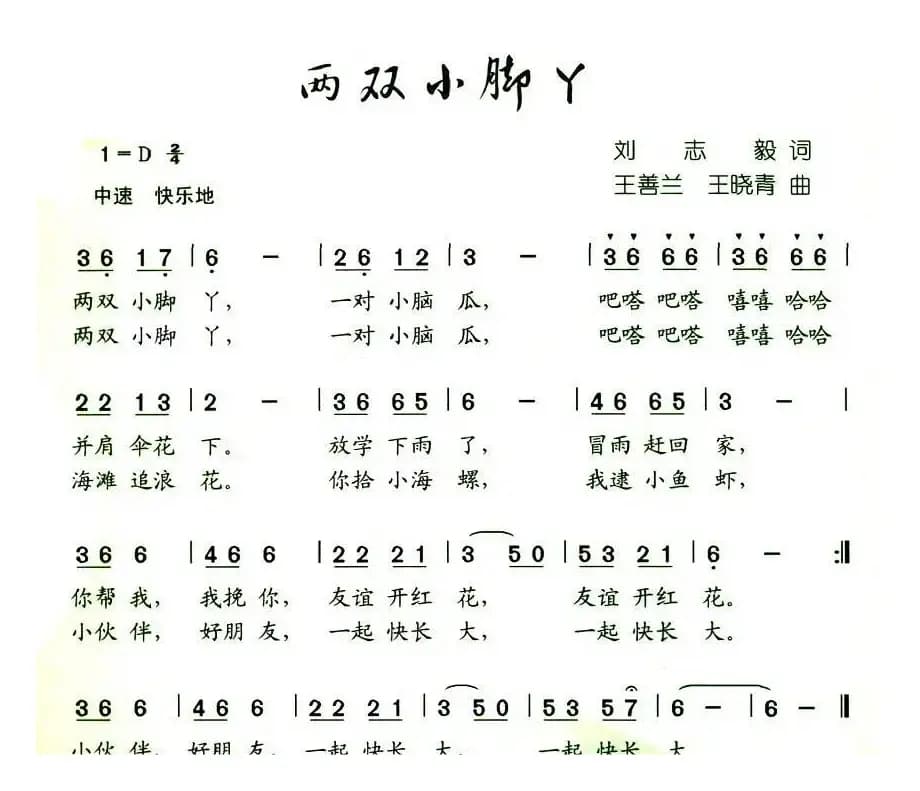 两双小脚丫
1=D 2/4
刘 志 毅 词
中速 快乐地
王善兰 王晓青 曲
3 6 1 7 | 6 - | 2 6 1 2 | 3 - | 3 6 6 6 | 3 6 6 6 |
两双 小脚 丫, 一对 小脑 瓜, 吧嗒 吧嗒 嘻嘻 哈哈
两双 小脚 丫, 一对 小脑 瓜, 吧嗒 吧嗒 嘻嘻 哈哈
2 2 1 3 | 2 - | 3 6 6 5 | 6 - | 4 6 6 5 | 3 - |
并肩 伞花 下。 放学 下雨 了, 冒雨 赶回 家,
海滩 追浪 花。 你拾 小海 螺, 我逮 小鱼 虾,
3 6 6 | 4 6 6 | 2 2 2 1 | 3 5 0 | 5 3 2 1 | 6 - :‖
你帮 我, 我挽 你, 友谊 开红 花, 友谊 开红 花。
小伙 伴, 好朋 友, 一起 快长 大, 一起 快长 大。
3 6 6 | 4 6 6 | 2 2 2 1 | 3 5 0 | 5 3 5 7 | 6 - | 6 - ‖
小伙 伴, 好朋 友, 一起 快长 大, 一起 快长 大